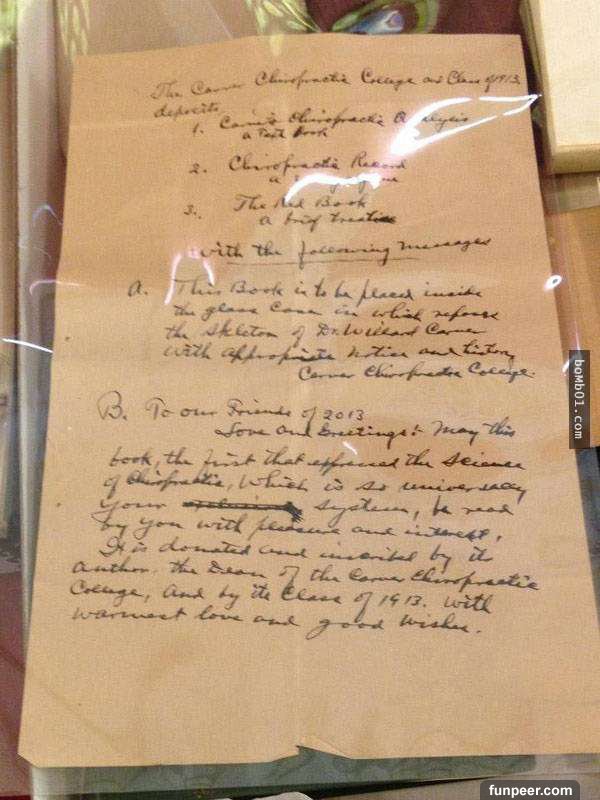 The Carver Chiropractic College and Class of 1913
deposits
1. Carver's Chiropractic Analysis
a Text Book
2. Chiropractic Record
a
3. The Red Book
a brief treatise
with the following messages
A. This Book is to be placed inside
the glass case in which reposes
the skeleton of Dr. Willard Carver
with appropriate notice and history
Carver Chiropractic College.
B. To our Friends of 2013
Love and Greetings: May this
book, the first that expressed the science
of Chiropractic, which is so universally
your system, be read
by you with pleasure and interest.
It is donated and inscribed by its
author. the Dean of the Carver Chiropractic
College, and by its Class of 1913. with
warmest love and good wishes.
bomb01.com
funpeer.com